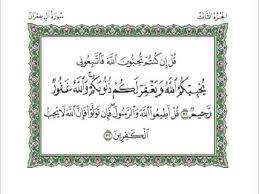 الجزء الثالث
سورة آل عمران
قُلْ إِن كُنتُمْ تُحِبُّونَ ٱللَّهَ فَٱتَّبِعُونِى
يُحْبِبْكُمُ ٱللَّهُ وَيَغْفِرْ لَكُمْ ذُنُوبَكُمْ ۗ وَٱللَّهُ غَفُورٌ
رَّحِيمٌ ٣١ قُلْ أَطِيعُوا۟ ٱللَّهَ وَٱلرَّسُولَ ۖ فَإِن تَوَلَّوْا۟ فَإِنَّ ٱللَّهَ لَا يُحِبُّ
ٱلْكَٰفِرِينَ ٣٢